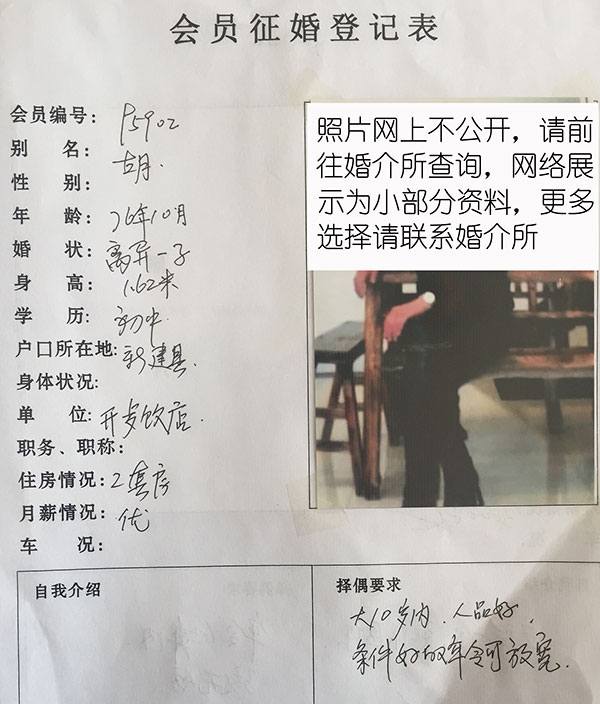 会员征婚登记表
会员编号: P5902
别 名: 胡
性 别:
年 龄: 76年10月
婚 状: 离异一子
身 高: 1.62米
学 历: 初中
户口所在地: 新建县.
身体状况:
单 位: 开饮店.
职务、职称:
住房情况: 2套房
月薪情况: 优
车 况:
照片网上不公开，请前
往婚介所查询，网络展
示为小部分资料，更多
选择请联系婚介所
自我介绍
择偶要求
大10岁内、人品好,
条件好的年令可放宽.